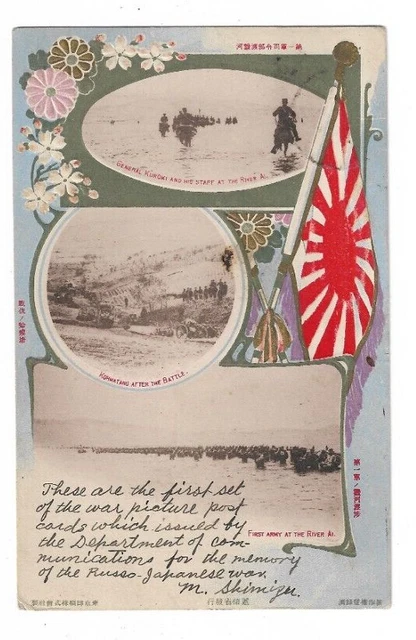 GENERAL KUROKI AND HIS STAFF AT THE RIVER AI.
HOHMATANG AFTER THE BATTLE.
FIRST ARMY AT THE RIVER AI.
These are the first set
of the war picture post
cards which issued by
the Department of com-
munications for the memory
of the Russo-Japanese war.
M. Shimizu.
逓信省発行